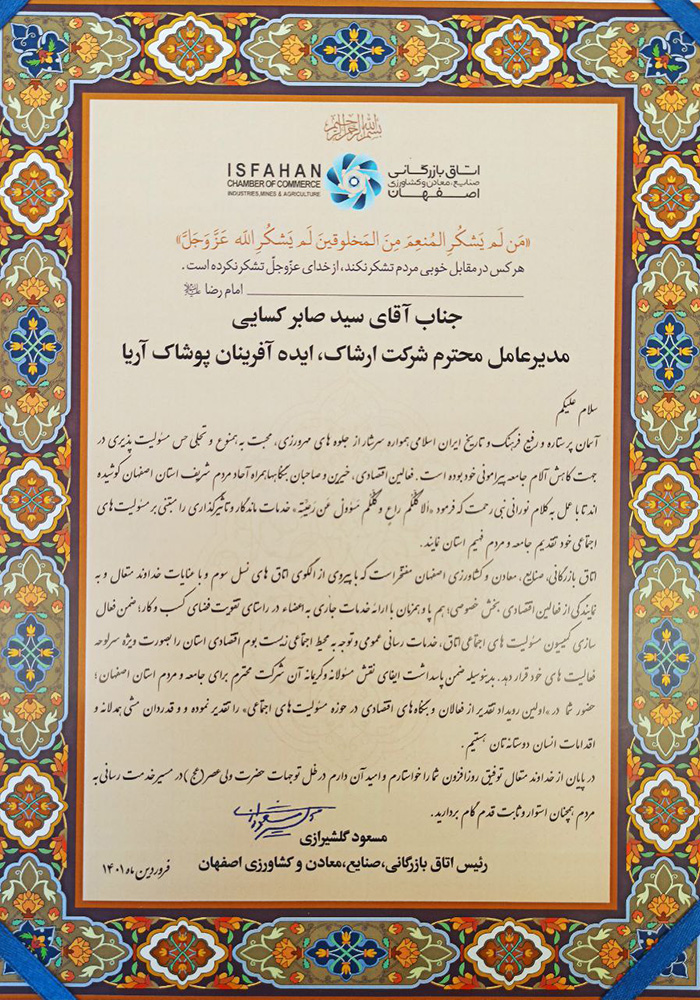 بسم الله الرحمن الرحیم
ISFAHAN
CHAMBER OF COMMERCE
INDUSTRIES, MINES & AGRICULTURE
اتاق بازرگانی
صنایع، معادن و کشاورزی
اصفهان
«مَن لَم یَشکُرِ المُنعِمَ مِنَ المَخلوقینَ لَم یَشکُرِ اللّه عَزَّ وَجَلَّ»
هر کس در مقابل خوبی مردم تشکر نکند، از خدای عزّوجلّ تشکر نکرده است.
امام رضا
جناب آقای سید صابر کسایی
مدیرعامل محترم شرکت ارشاک، ایده آفرینان پوشاک آریا
سلام علیکم
آسمان پر ستاره و رفیع فرهنگ و تاریخ ایران اسلامی همواره سرشار از جلوه های مهرورزی، محبت به همنوع و تجلی حس مسئولیت پذیری در
جهت کاهش آلام جامعه پیرامونی خود بوده است. فعالین اقتصادی، خیرین و صاحبان بنگاهها همراه آحاد مردم شریف استان اصفهان کوشیده
اند تا با عمل به کلام نورانی نبی رحمت که فرمود «الا کُلُّکُم راعٍ و کُلُّکُم مَسؤولٌ عَن رَعیَّتِه» خدمات ماندگار و تأثیرگذاری را مبتنی بر مسئولیت های
اجتماعی خود تقدیم جامعه و مردم فهیم استان نمایند.
اتاق بازرگانی، صنایع، معادن و کشاورزی اصفهان مفتخر است که با پیروی از الگوی اتاق های نسل سوم و با عنایات خداوند متعال و به
نمایندگی از فعالین اقتصادی بخش خصوصی، هم پا و همزبان با ارائه خدمات جاری به اعضاء در راستای تقویت فضای کسب و کار؛ ضمن فعال
سازی کمیسیون مسئولیت های اجتماعی اتاق، خدمات رسانی عمومی و توجه به محیط اجتماعی زیست بوم اقتصادی استان را بصورت ویژه سرلوحه
فعالیت های خود قرار دهد. بدینوسیله ضمن پاسداشت ایفای نقش مسئولانه و کریمانه آن شرکت محترم برای جامعه و مردم استان اصفهان؛
حضور شما در «اولین رویداد تقدیر از فعالان و بنگاه های اقتصادی در حوزه مسئولیت های اجتماعی» را تقدیر نموده و و قدردان مشی همدلانه و
اقدامات انسان دوستانه تان هستیم.
در پایان از خداوند متعال توفیق روزافزون شما را خواستارم و امید آن دارم در ظل توجهات حضرت ولی عصر (عج) در مسیر خدمت رسانی به
مردم همچنان استوار و ثابت قدم گام بردارید.
مسعود گلشیرازی
رئیس اتاق بازرگانی، صنایع، معادن و کشاورزی اصفهان
فروردین ماه ۱۴۰۱